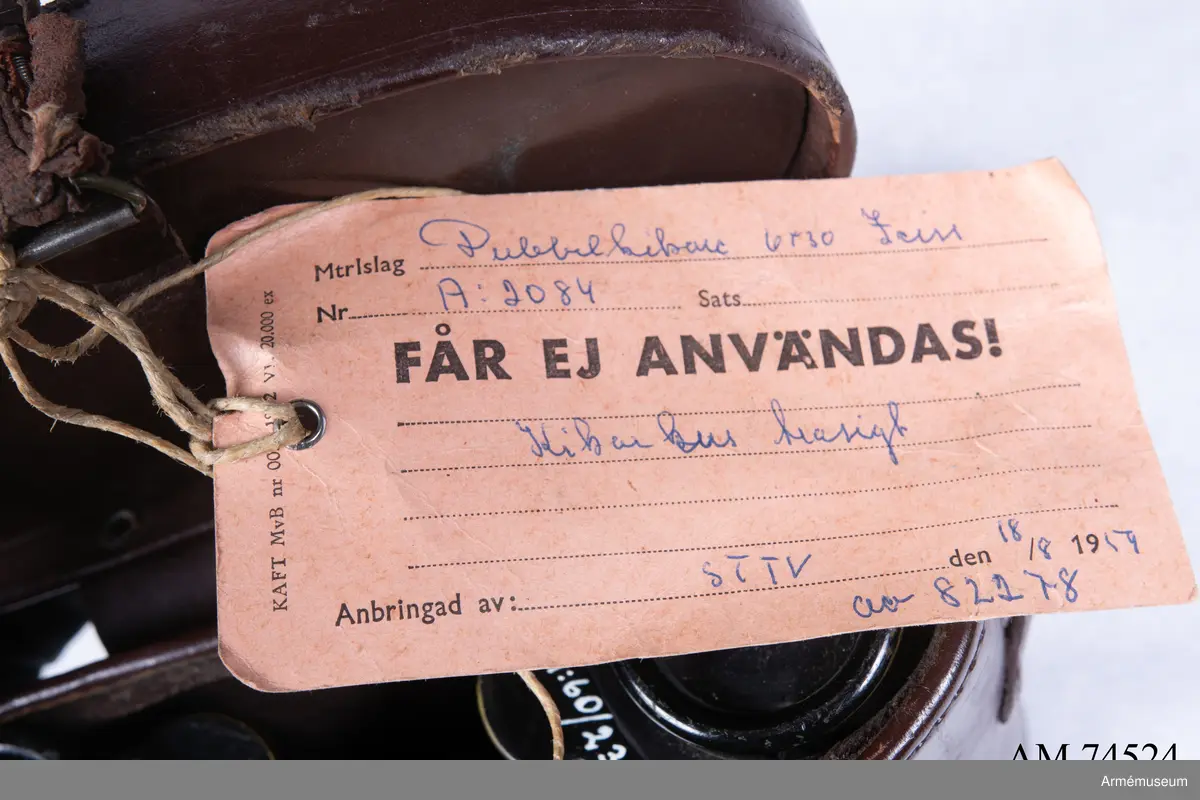 Mtrlslag Dubbelkikare 6x30 Zeiss
Nr A:2084 Sats
FÅR EJ ANVÄNDAS!
Kikarhus trasigt
Anbringad av: STTV den 18/8 1959
ao 82278
KAFT MvB nr 20.000 ex
:60/23
AM 74524
Armémuseum